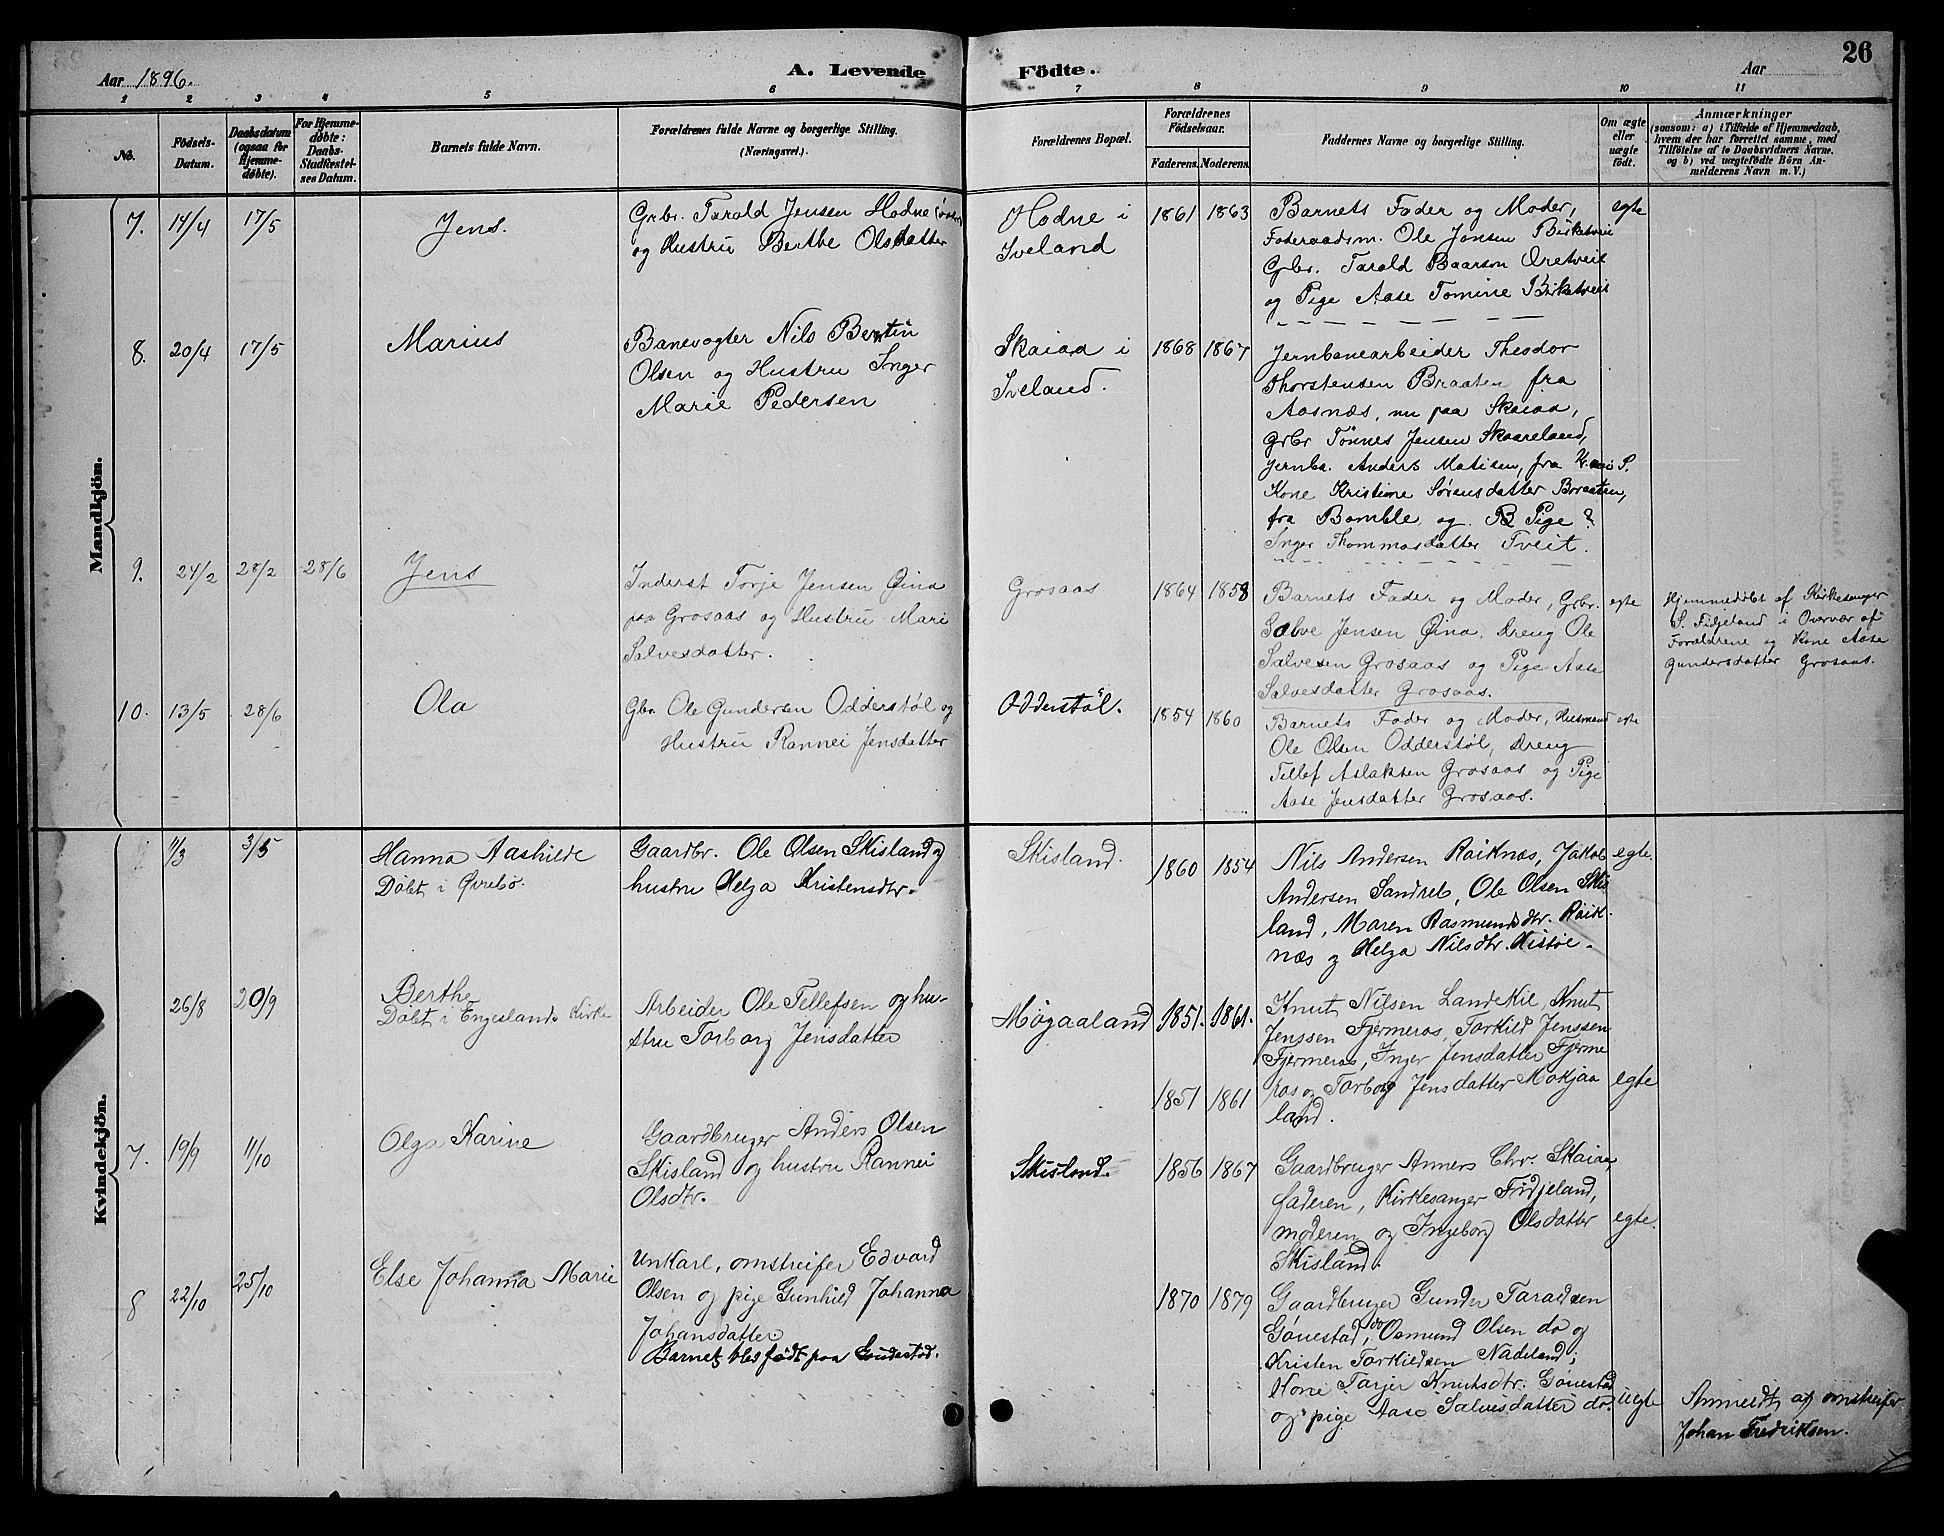 26
Aar 1896.
A. Levende Födte.
Aar
1 2 3 4 5 6 7 8 9 10 11
No.
Födsels-
Datum.
Daabsdatum
(ogsaa for
Hjemme-
döbte).
For Hjemme-
döbte:
Daabs-
Stadfæstel-
ses Datum.
Barnets fulde Navn.
Forældrenes fulde Navne og borgerlige Stilling.
(Næringsvei.)
Forældrenes Bopæl.
Forældrenes
Födselsaar.
Faderens. Moderens.
Faddernes Navne og borgerlige Stilling.
Om ægte
eller
uægte
födt.
Anmærkninger
(saasom: a) i Tilfælde af Hjemmedaab,
hvem der har forrettet samme, med
Tilföielse af to Daabsvidners Navne.
og b) ved uægtefödte Börn An-
melderens Navn m. V.)
Mandkjön.
7. 14/4 17/5
Jens.
Grbr. Tarald Jensen Hodne
og Hustru Berthe Olsdatter
Hodne i
Iveland
1861 1863
Barnets Fader og Moder,
Foderaadsm. Ole Jensen Birketveit
Grbr. Tarald Baarson
og Pige Aase Tomine Birketveit
egte
8. 20/4 17/5
Marius
Banevogter Nils Bertin
Olsen og Hustru Inger
Marie Pedersen
Skaiaa i
Iveland.
1868 1867
Jernbanearbeider Theodor
Thorstensen Braaten fra
Aasnæs, nu paa Skaiaa,
Grbr Tönnes Jensen Skaareland,
jernba. Anders Matisen, fra
Kone Kristine Sørensdatter Braaten,
fra Bamble og Pige ?
Inger Thommasdatter Tveit.
9. 24/2 28/2 28/6
Jens
Inderst Torje Jensen Øina
paa Grosaas og Hustru Mari
Salvesdatter.
Grosaas
1864 1858
Barnets Fader og Moder, Grbr.
Salve Jensen Øina, Dreng Ole
Salvesen Grosaas og Pige Aase
Salvesdatter Grosaas.
egte
Hjemmedöbt af Kirkesanger
S. Fidjeland i Overvær af
Forældrene og Kone Aase
Gundersdatter Grosaas.
10. 13/5 28/6
Ola
Gbr. Ole Gundersen Odderstøl og
Hustru Rannei Jensdatter
Odderstøl.
1854 1860
Barnets Fader og Moder, Husmand
Ole Olsen Odderstøl, Dreng
Tellef Aslaksen Grosaas og Pige
Aase Jensdatter Grosaas.
egte
Kvindekjön.
1/3 3/5
Hanna Aashilde
Döbt i Øvrebö.
Gaardbr. Ole Olsen Skisland og
hustru Helga Kristensdtr.
Skisland.
1860 1854
Nils Andersen Røiknæs, Jakob
Andersen Sandrel, Ole Olsen Skis
land, Maren Rasmundsdtr. Røik-
næs og Helga Nilsdtr. Kistöl.
egte.
26/8 20/9
Berthe
Döbt i Engeslands Kirke
Arbeider Ole Tellefsen og hu-
stru Torborg Jensdatter
Møgaaland
1851. 1861.
1851 1861
Knut Nilsen Landekil, Knut
Jenssen Fjermeros, Torkild Jenssen
Fjermeros, Inger Jensdatter Fjerme
ros og Torborg Jensdatter Mokjaa
land.
egte
7. 19/9 11/10
Olga Karine
Gaardbruger Anders Olsen
Skisland og hustru Rannei
Olsdtr.
Skisland.
1856 1867
Gaardbruger Anners Chr. Skaiaa
faderen, Kirkesanger Fidjeland,
moderen og Ingeborg Olsdatter
Skisland.
egte.
8 22/10 25/10
Else Johanna Marie
Unkarl, omstreifer Edvard
Olsen og pige Gunhild Johanna
Johansdatter
Barnet blev födt paa
1870 1879
Gaardbruger Gunder Taraldsen
Gönestad, Osmund Olsen do og
Kristen Torkildsen Nadeland,
Kone Tarjer Knutsdtr. Gönestad
og pige Aase Salvesdatter do.
uegte
Anmeldt af omstreifer
Johan Fredriksen.